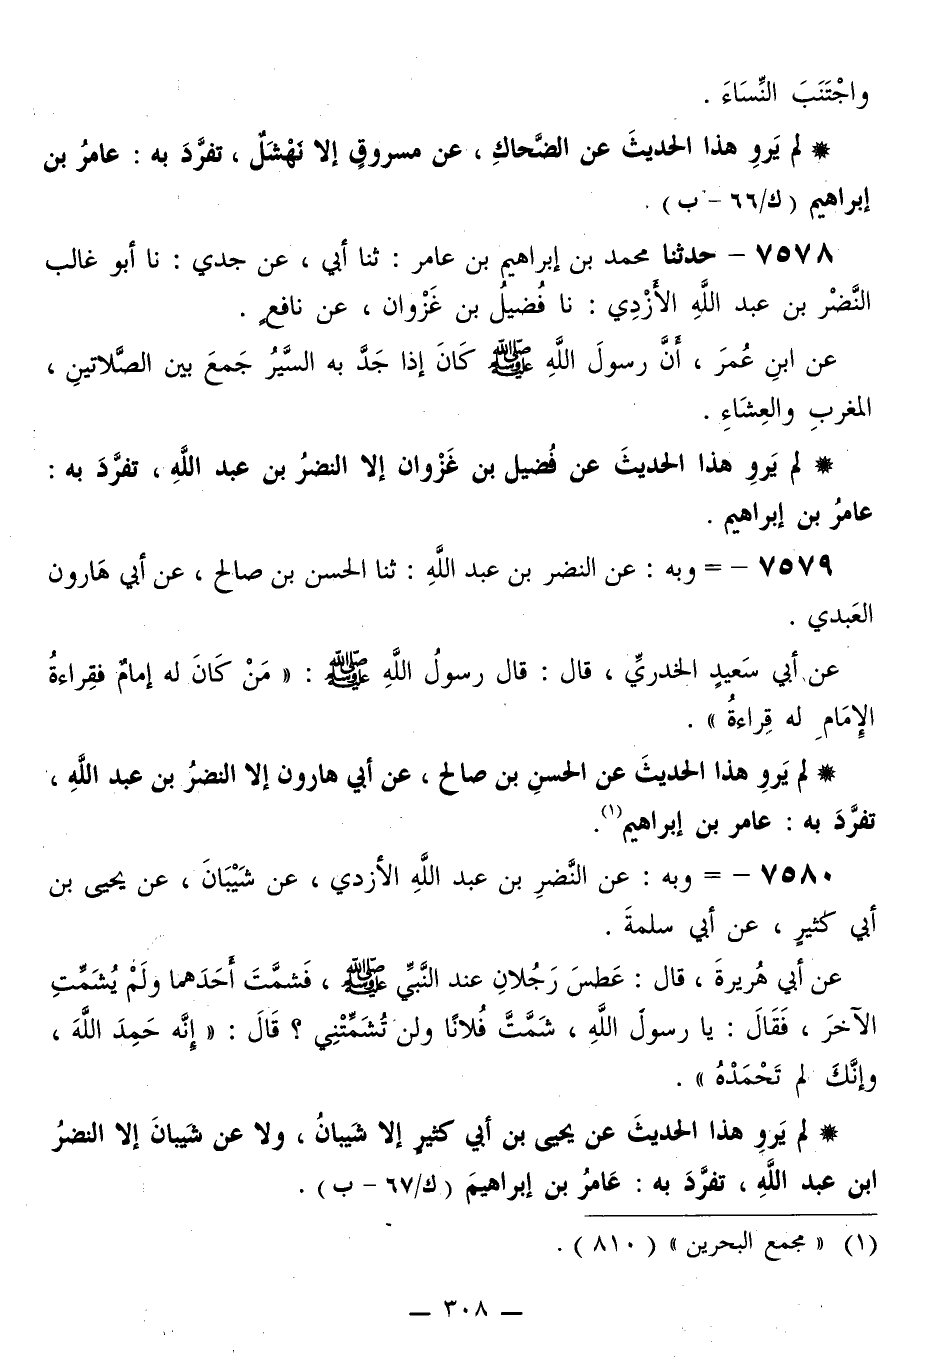 واجْتَنَبَ النِّسَاءَ .
* لم يَروِ هذا الحديثَ عن الضَّحاكِ ، عن مسروقٍ إلا نَهْشَلٌ ، تفرَّدَ به : عامرُ بن
إبراهيم ( ك/٦٦ - ب ) .
٧٥٧٨ - حدثنا محمد بن إبراهيم بن عامر : ثنا أبي ، عن جدي : نا أبو غالب
النَّضْر بن عبد اللَّهِ الأَزْدِي : نا فُضيلُ بن غَزْوان ، عن نافعٍ .
عن ابنِ عُمرَ ، أَنَّ رسولَ اللَّهِ ﷺ كَانَ إذا جَدَّ به السيَّرُ جَمعَ بين الصَّلاتينِ ،
المغربِ والعِشَاءِ .
* لم يَروِ هذا الحديثَ عن فُضيل بن غَزْوان إلا النضرُ بن عبد اللَّهِ ، تفرَّدَ به :
عامرُ بن إبراهيم .
٧٥٧٩ - = وبه : عن النضر بن عبد اللَّهِ : ثنا الحسن بن صالح ، عن أبي هَارون
العَبدي .
عن أبي سَعيدٍ الخدريِّ ، قال : قال رسولُ اللَّهِ ﷺ : « مَنْ كَانَ له إمامٌ فقِراءةُ
الإِمَامِ له قِراءةُ » .
* لم يَروِ هذا الحديثَ عن الحسنِ بن صالح ، عن أبي هارون إلا النضرُ بن عبد اللَّهِ ،
تفرَّدَ به : عامر بن إبراهيم(١).
٧٥٨٠ - = وبه : عن النَّضرِ بن عبد اللَّهِ الأزدي ، عن شَيْبَانَ ، عن يحيى بن
أبي كثيرٍ ، عن أبي سلمةَ .
عن أبي هُريرةَ ، قال : عَطسَ رَجُلانِ عند النَّبيِّ ﷺ ، فَشمَّتَ أَحَدَهما ولَمْ يُشَمِّتِ
الآخرَ ، فَقَالَ : يا رسولَ اللَّهِ ، شَمَّتَّ فُلانًا ولن تُشَمِّتْنِي ؟ قَالَ : « إِنَّه حَمِدَ اللَّهَ ،
وإنَّكَ لم تَحْمَدْهُ » .
* لم يَروِ هذا الحديثَ عن يحيى بن أبي كثيرٍ إلا شَيبانُ ، ولا عن شَيبانَ إلا النضرُ
ابن عبد اللَّهِ ، تفرَّدَ به : عَامرُ بن إبراهيمَ ( ك/٦٧ - ب ) .
(١) « مجمع البحرين » ( ٨١٠ ) .
— ٣٠٨ —